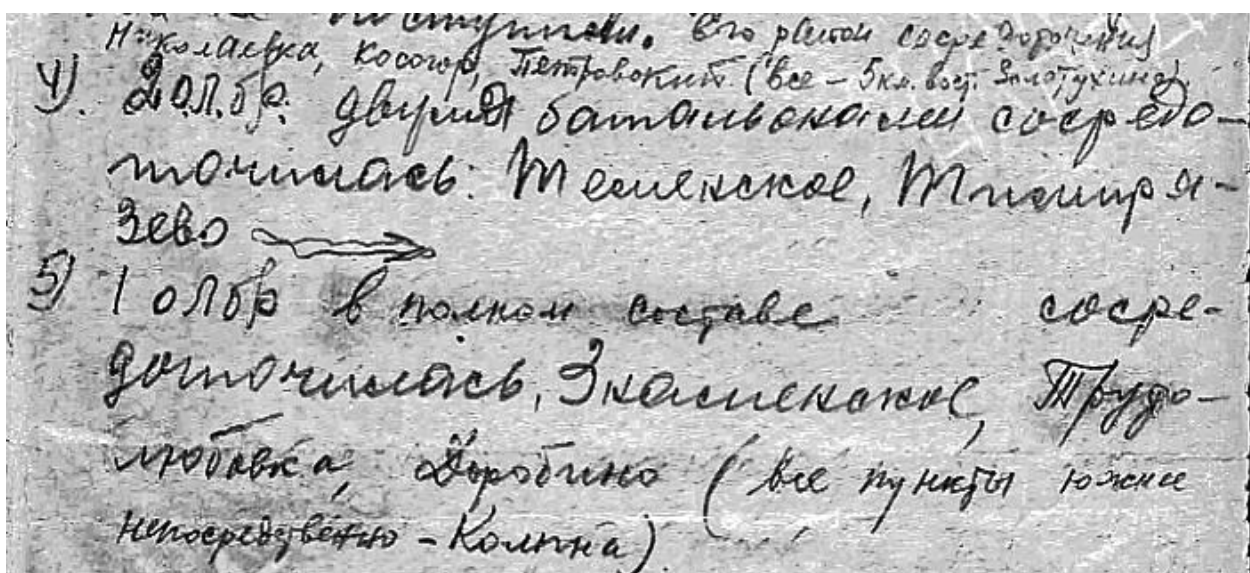 поступили. Его район сосредоточения
Николаевка, Косогор, Петровский (все – 5 км. вост. Золотухина)
4). 2 о.л.бр. двумя батальонами сосредо-
точилась: Теменское, Тимиря-
зево
5) 1 олбр в полном составе сосре-
доточилась, Знаменское, Трудо-
любовка, Доробино (все пункты южнее
непосредственно – Колпна)